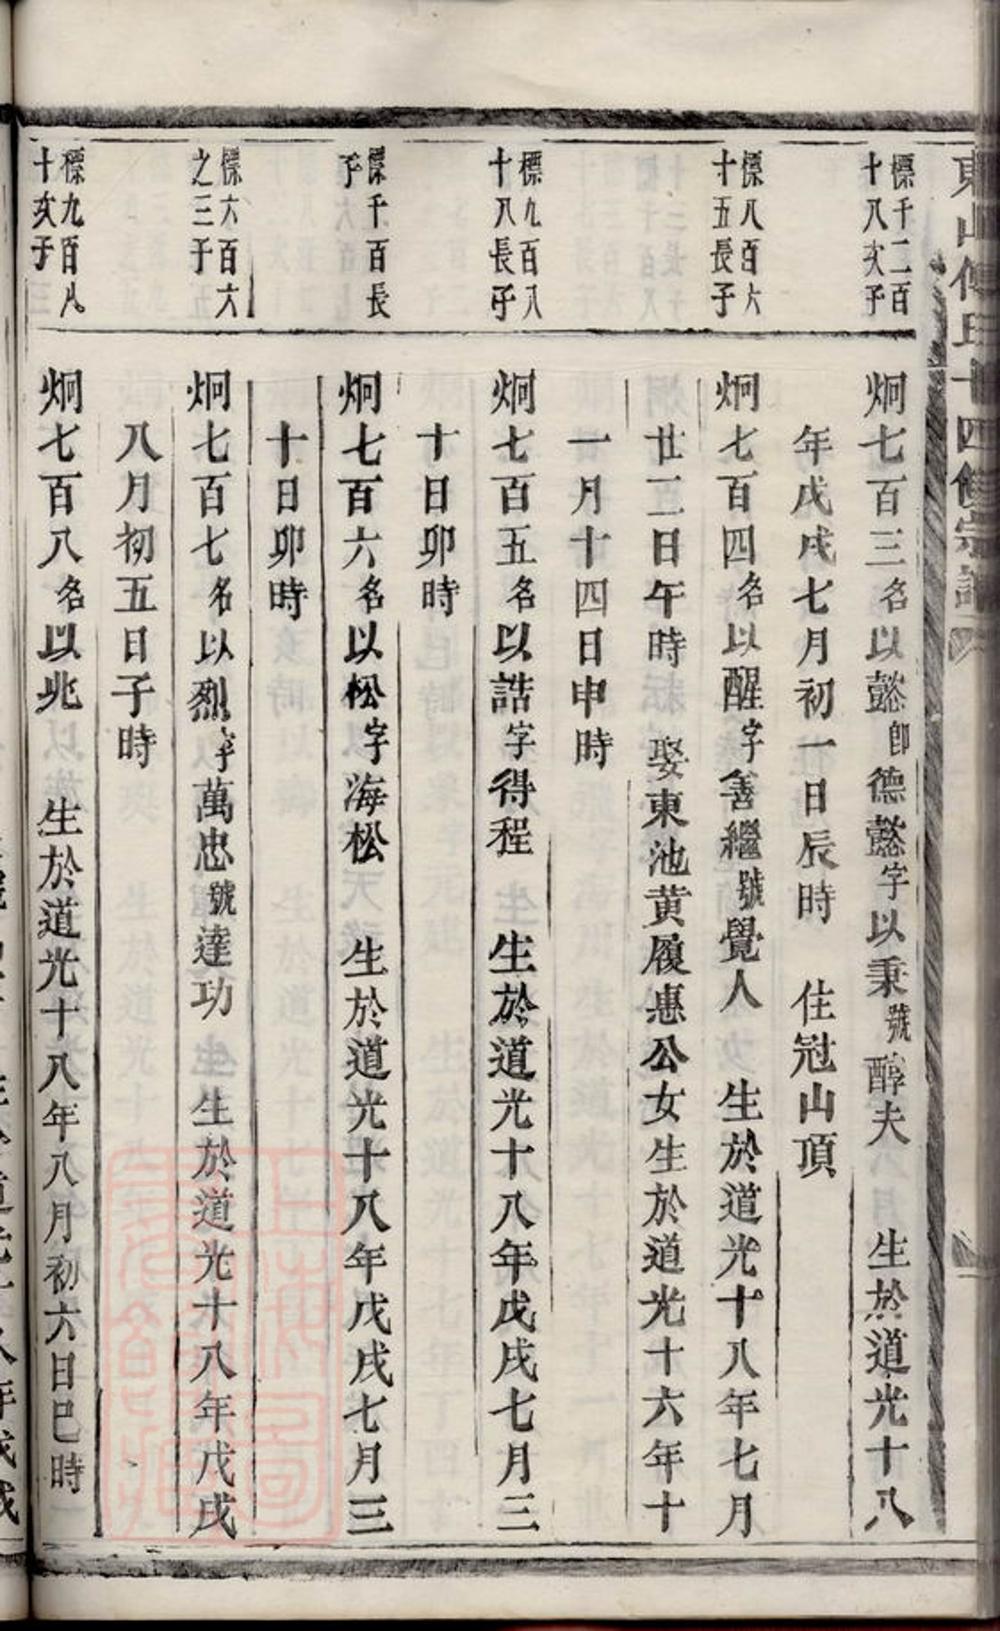 東山傅氏十四修宗譜
標千二百
十八次子
炯七百三名以懿卽德懿字以秉號醇夫 生於道光十八
年戊戌七月初一日辰時 住冠山頂
標八百六
十五長子
炯七百四名以醒字善繼號覺人 生於道光十八年七月
廿二日午時 娶東池黃履惠公女生於道光十六年十
一月十四日申時
標九百八
十八長子
炯七百五名以誥字得程 生於道光十八年戊戌七月三
十日卯時
標千百長
子
炯七百六名以松字海松 生於道光十八年戊戌七月三
十日卯時
標六百六
之三子
炯七百七名以烈字萬忠號達功 生於道光十八年戊戌
八月初五日子時
標九百八
十次子
炯七百八名以兆 生於道光十八年八月初六日巳時